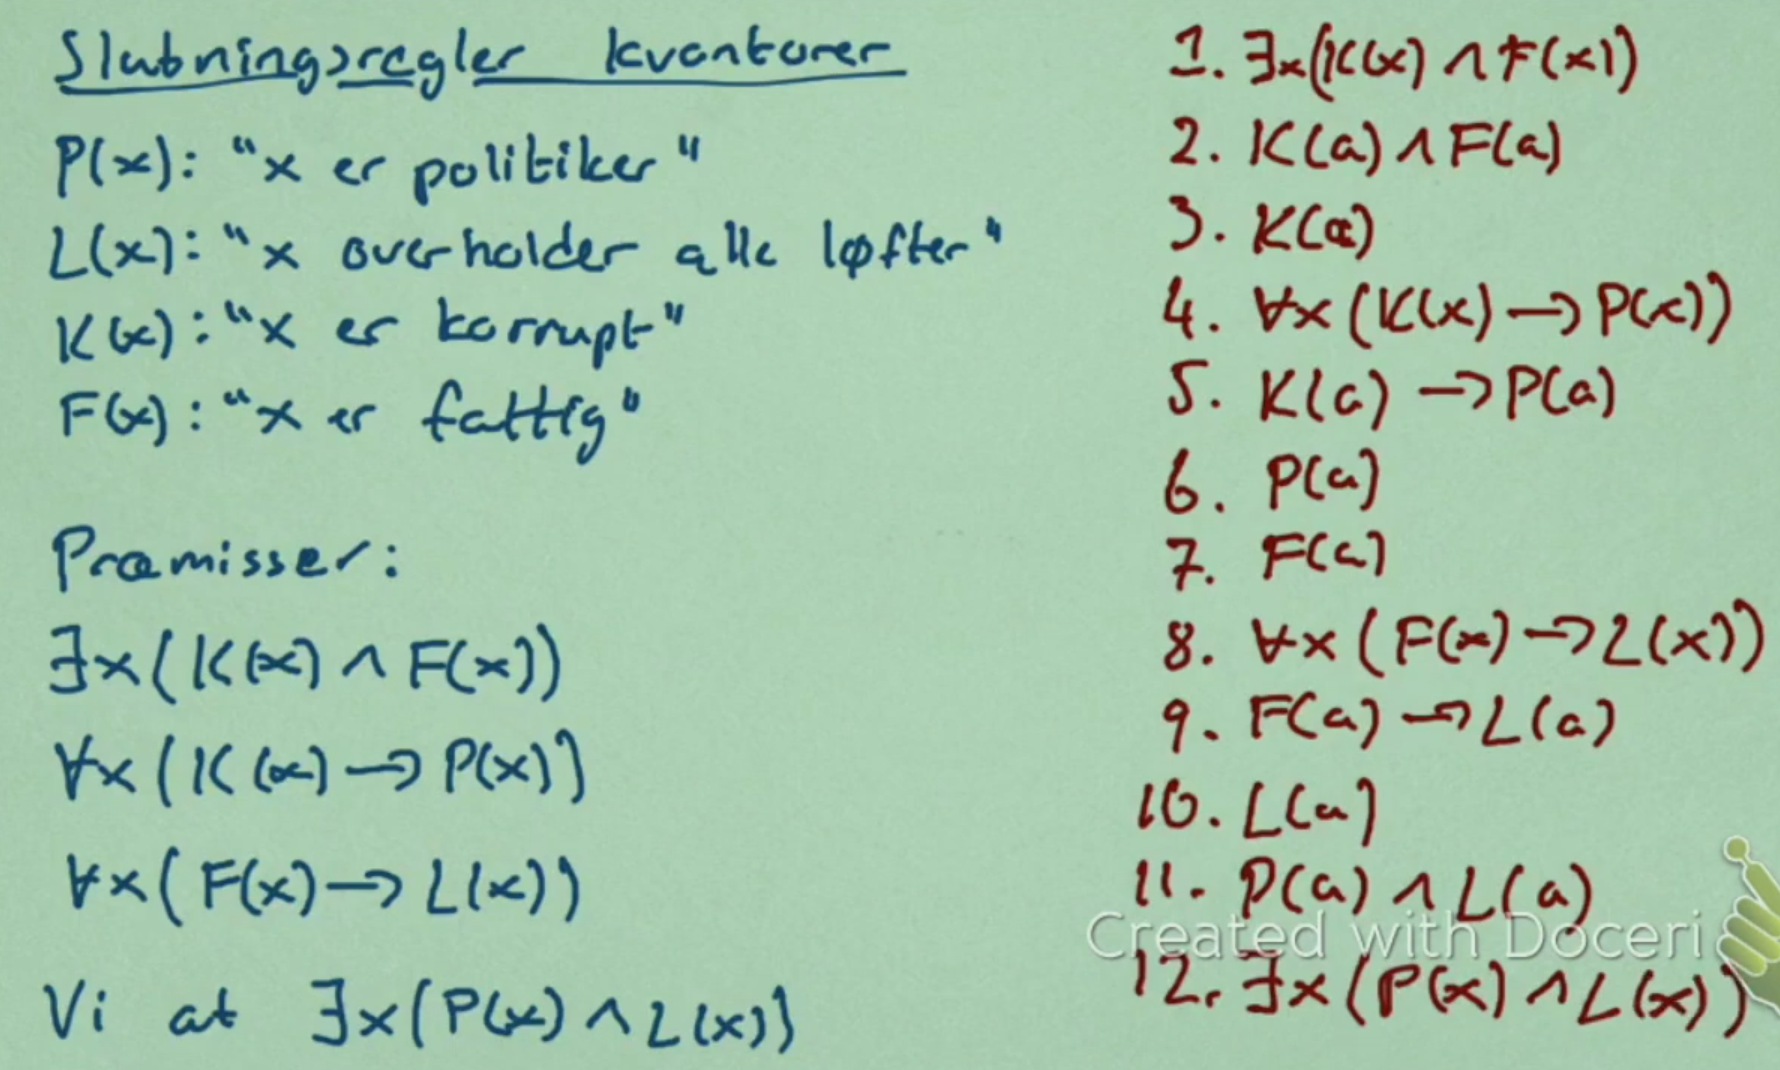 Slutningsregler kvantorer
P(x): "x er politiker"
L(x): "x overholder alle løfter"
K(x): "x er korrupt"
F(x): "x er fattig"
Præmisser:
∃x(K(x) ∧ F(x))
∀x(K(x) → P(x))
∀x(F(x) → L(x))
Vi at ∃x(P(x) ∧ L(x))
1. ∃x(K(x) ∧ F(x))
2. K(a) ∧ F(a)
3. K(a)
4. ∀x(K(x) → P(x))
5. K(a) → P(a)
6. P(a)
7. F(a)
8. ∀x(F(x) → L(x))
9. F(a) → L(a)
10. L(a)
11. P(a) ∧ L(a)
Created with Doceri
12. ∃x(P(x) ∧ L(x))